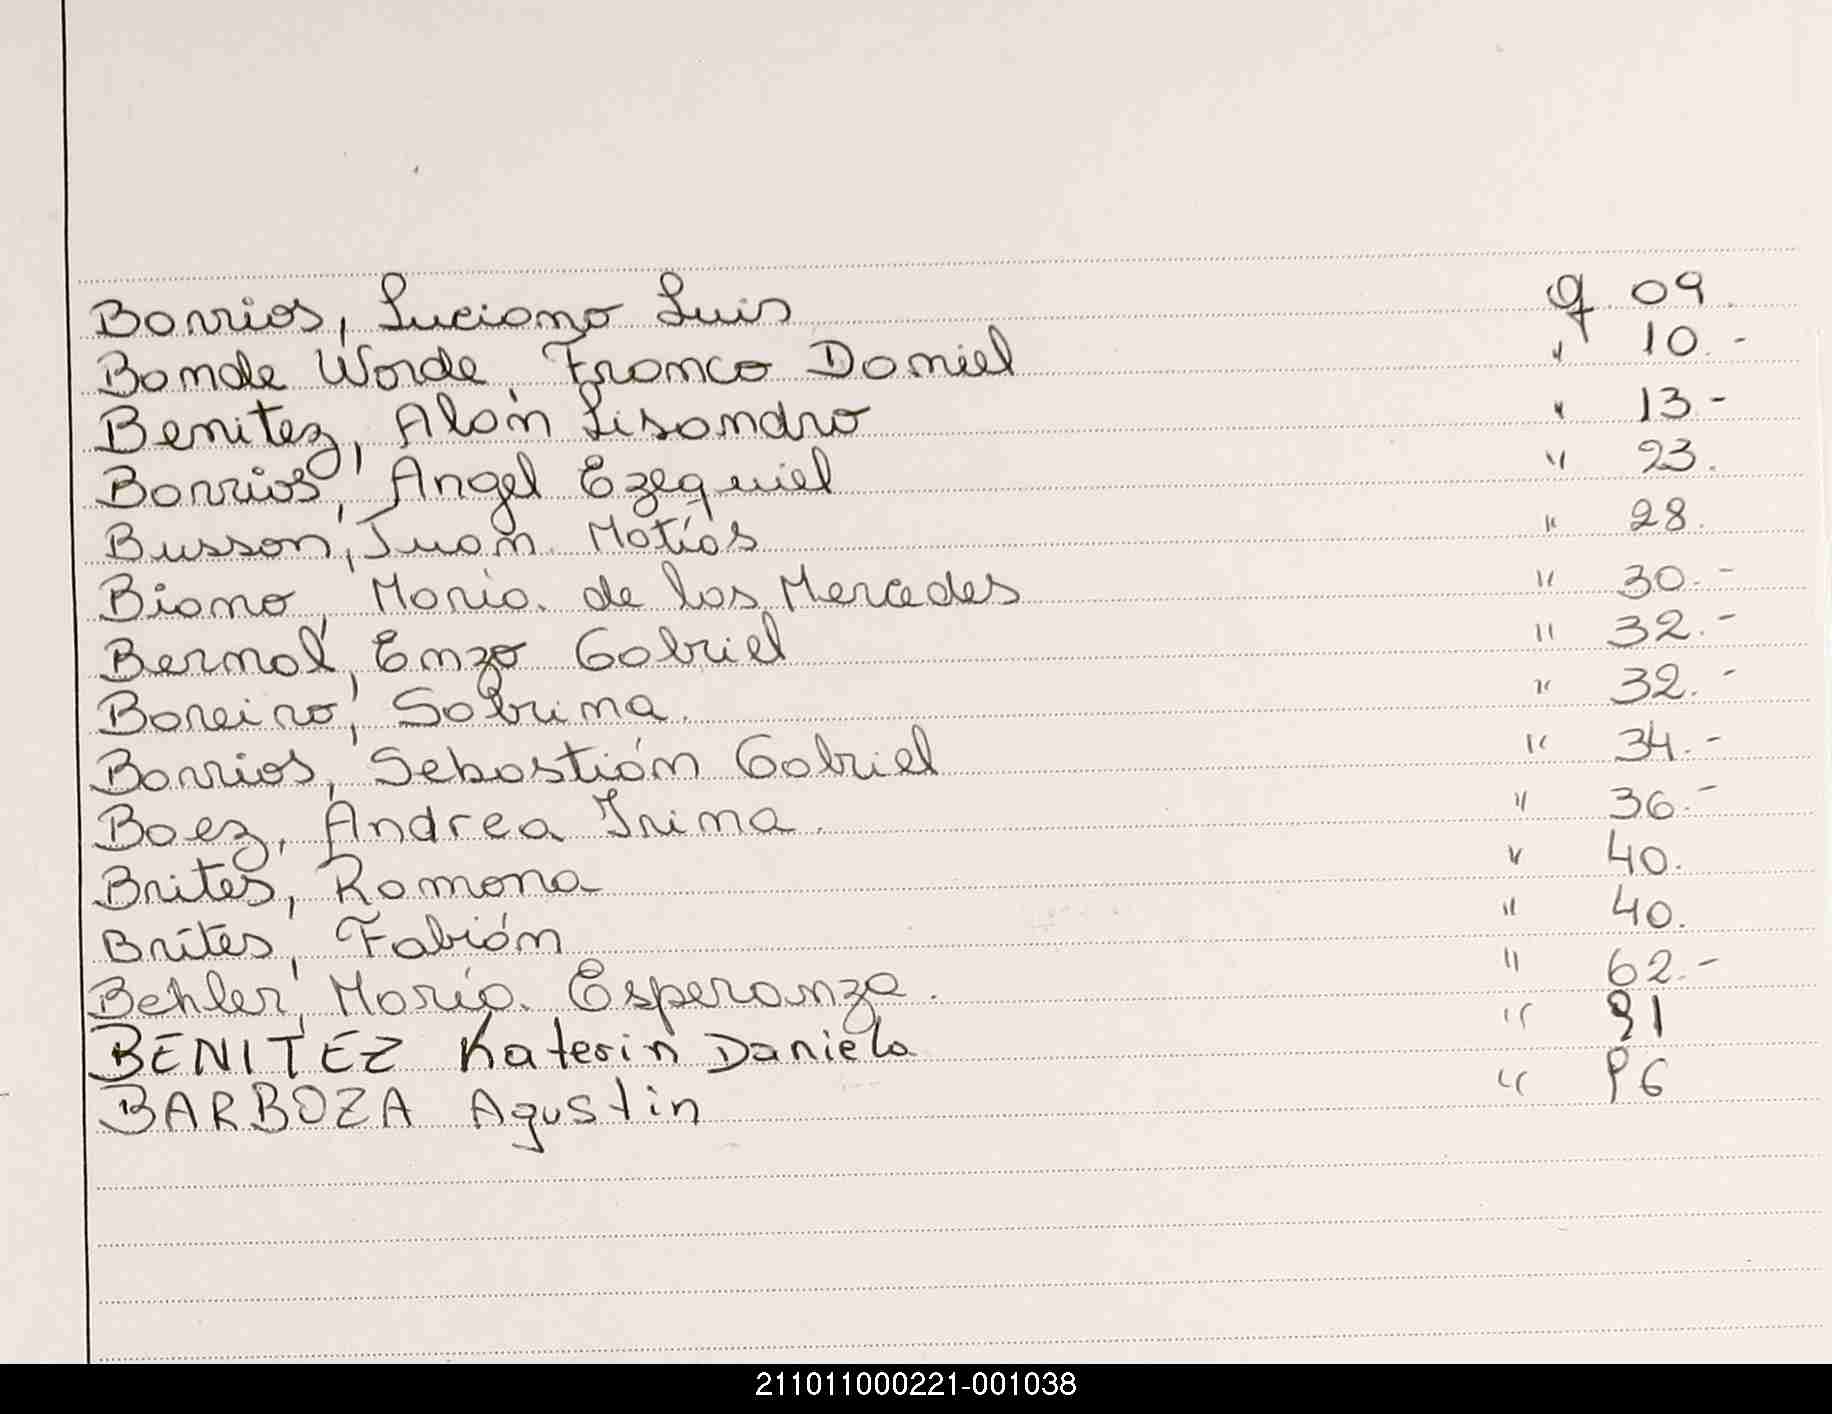 Barrios, Luciano Luis f 09.
Bande Warde, Franco Daniel " 10.-
Benitez, Alán Lisandro " 13-
Barrios, Angel Ezequiel " 23.
Busson, Juan Matías " 28.
Biano, María de los Mercedes " 30.-
Bernal, Enzo Gabriel " 32.-
Bareiro, Sabrina " 32.-
Barrios, Sebastián Gabriel " 34.-
Baez, Andrea Irina. " 36.-
Brites, Ramona " 40.
Brites, Fabián " 40.
Behler, María Esperanza. " 62.-
BENITEZ Katerin Daniela " 91
BARBOZA Agustin " 96
211011000221-001038